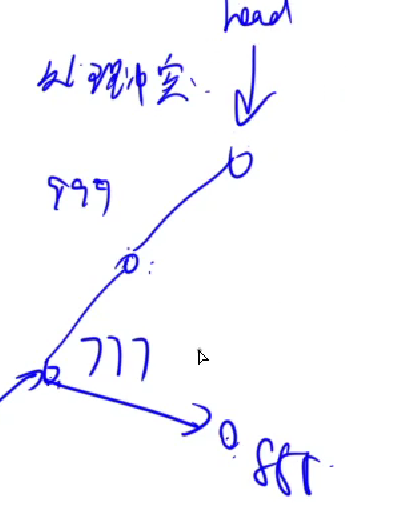 head
处理冲突:
999
777
888